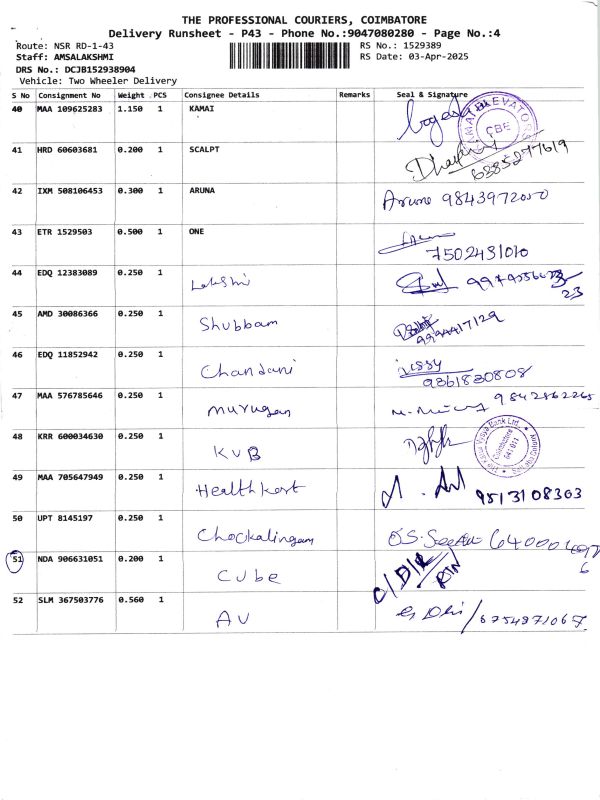 THE PROFESSIONAL COURIERS, COIMBATORE
Delivery Runsheet - P43 - Phone No.:9047080280 - Page No.:4
Route: NSR RD-1-43
RS No.: 1529389
Staff: AMSALAKSHMI
RS Date: 03-Apr-2025
DRS No.: DCJB152938904
Vehicle: Two Wheeler Delivery
S No Consignment No Weight PCS Consignee Details Remarks Seal & Signature
40 MAA 109625283 1.150 1 KAMAI
CBE
41 HRD 60603681 0.200 1 SCALPT
6385277619
42 IXM 508106453 0.300 1 ARUNA Aruna 9843972050
43 ETR 1529503 0.500 1 ONE
7502431010
44 EDQ 12383089 0.250 1 Lakshmi
23
45 AMD 30086366 0.250 1 Shubbam
46 EDQ 11852942 0.250 1 Chandani Jessy
9361830808
47 MAA 576785646 0.250 1 murugan 9842862265
48 KRR 600034630 0.250 1 KVB
Coimbatore
641 011
49 MAA 705647949 0.250 1 Healthkart 9513108303
50 UPT 8145197 0.250 1 Chockalingam
51 NDA 906631051 0.200 1 Cube C/D/R/RTN
52 SLM 367503776 0.560 1 AV